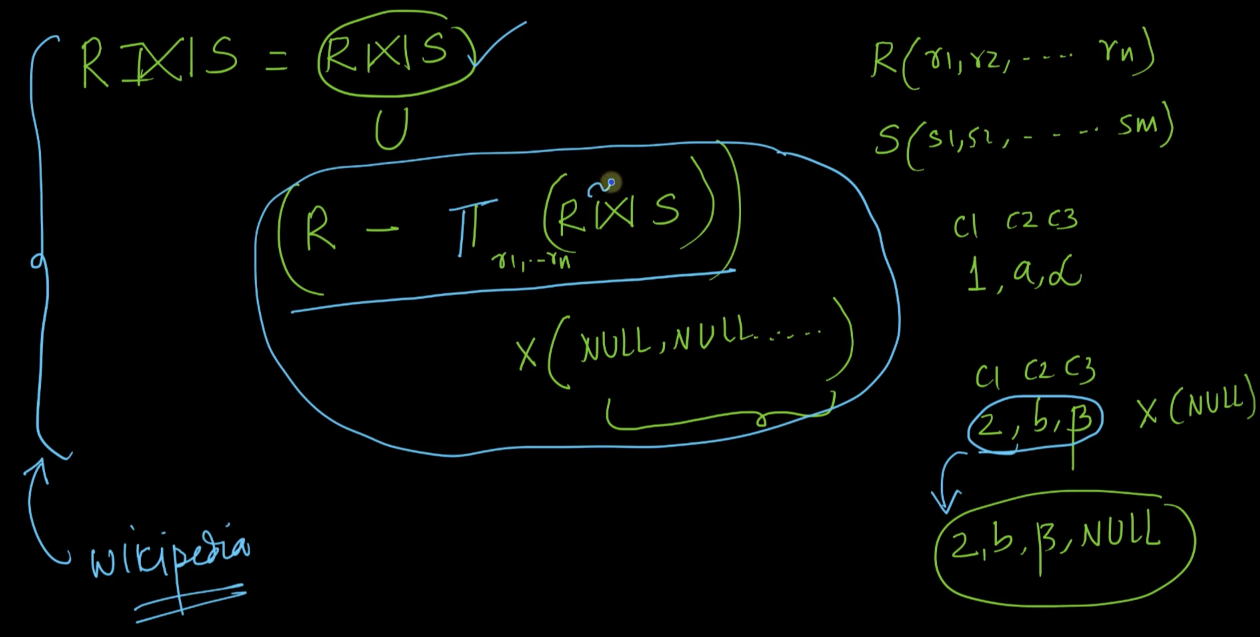 R ⟕ S = R ⋈ S
∪
(R − π r1,...rn (R ⋈ S))
× (NULL, NULL......)
wikipedia
R(r1, r2, ---- rn)
S(s1, s2, ----- sm)
C1 C2 C3
1, a, α
C1 C2 C3
2, b, β × (NULL)
2, b, β, NULL